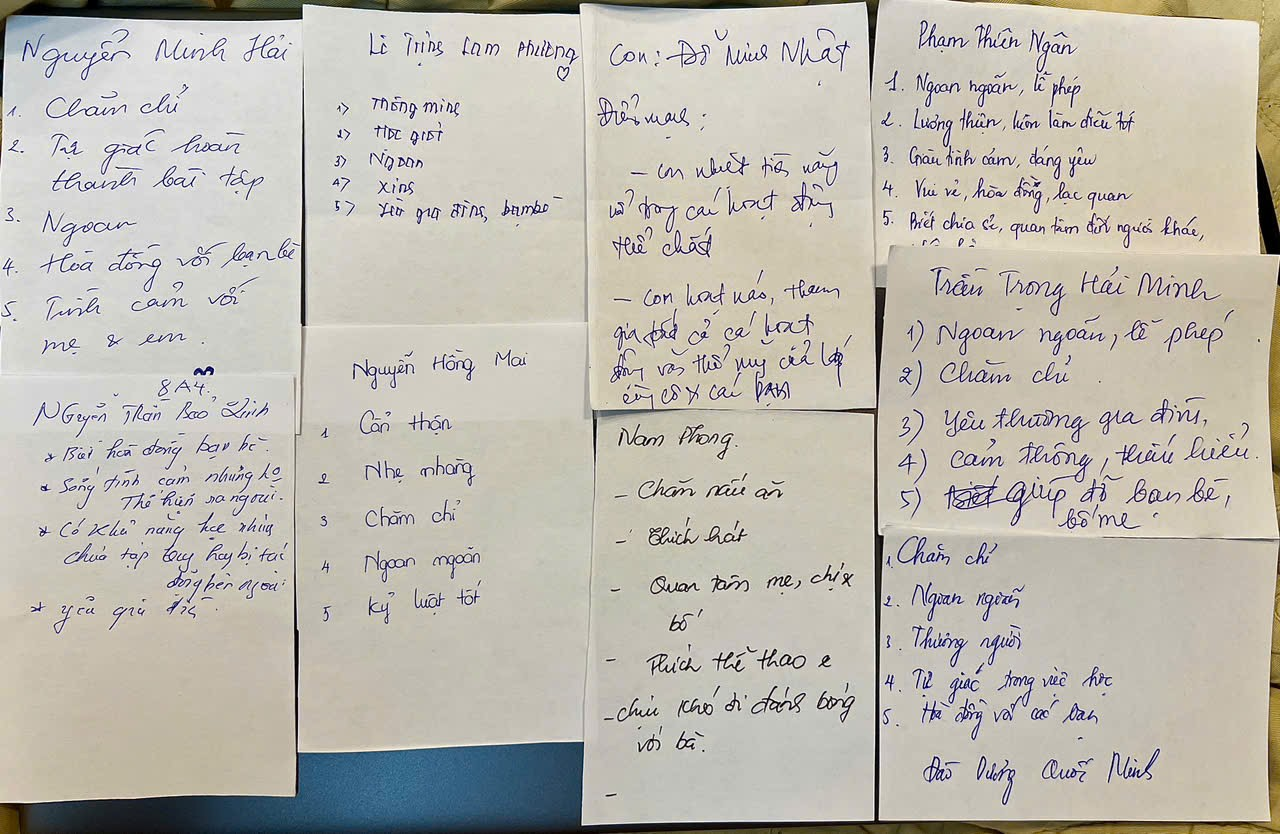 Nguyễn Minh Hải
1. Chăm chỉ
2. Tự giác hoàn
thành bài tập
3. Ngoan
4. Hòa đồng với bạn bè
5. Tình cảm với
mẹ & em.
Lê Trịnh Lam Phương
1) Thông minh
2) Học giỏi
3) Ngoan
4) Xinh
5) Yêu gia đình, bạn bè
Con: Đỗ Minh Nhật
Điểm mạnh:
- Con nhiệt tình năng
nổ trong các hoạt động
thể chất
- Con hoạt náo, tham
gia tất cả các hoạt
động văn thể mỹ của lớp
cùng cô & các bạn
Phạm Thiên Ngân
1. Ngoan ngoãn, lễ phép
2. Lương thiện, luôn làm điều tốt
3. Giàu tình cảm, đáng yêu
4. Vui vẻ, hòa đồng, lạc quan
5. Biết chia sẻ, quan tâm đến người khác,
Trần Trọng Hải Minh
1) Ngoan ngoãn, lễ phép
2) Chăm chỉ.
3) Yêu thương gia đình,
4) Cảm thông, thấu hiểu.
5) giúp đỡ bạn bè,
bố mẹ
8A4.
Nguyễn Trần Bảo Linh
* Biết hoà đồng bạn bè.
* Sống tình cảm nhưng
Thể hiện ra ngoài.
* Có khả năng học nhưng
chưa tập trung hay bị tác
động bên ngoài
* Yêu gia đình.
Nguyễn Hồng Mai
1 Cẩn thận
2 Nhẹ nhàng
3 Chăm chỉ
4 Ngoan ngoãn
5 Kỷ luật tốt
Nam Phong.
- Chăm nấu ăn
- Thích hát
- Quan tâm mẹ, chị &
bố
- Thích thể thao
- Chịu khó đi đánh bóng
với bà.
-
1. Chăm chỉ
2. Ngoan ngoãn
3. Thương người
4. Tự giác trong việc học
5. Hoà đồng với các bạn
Đào Dương Quốc Minh